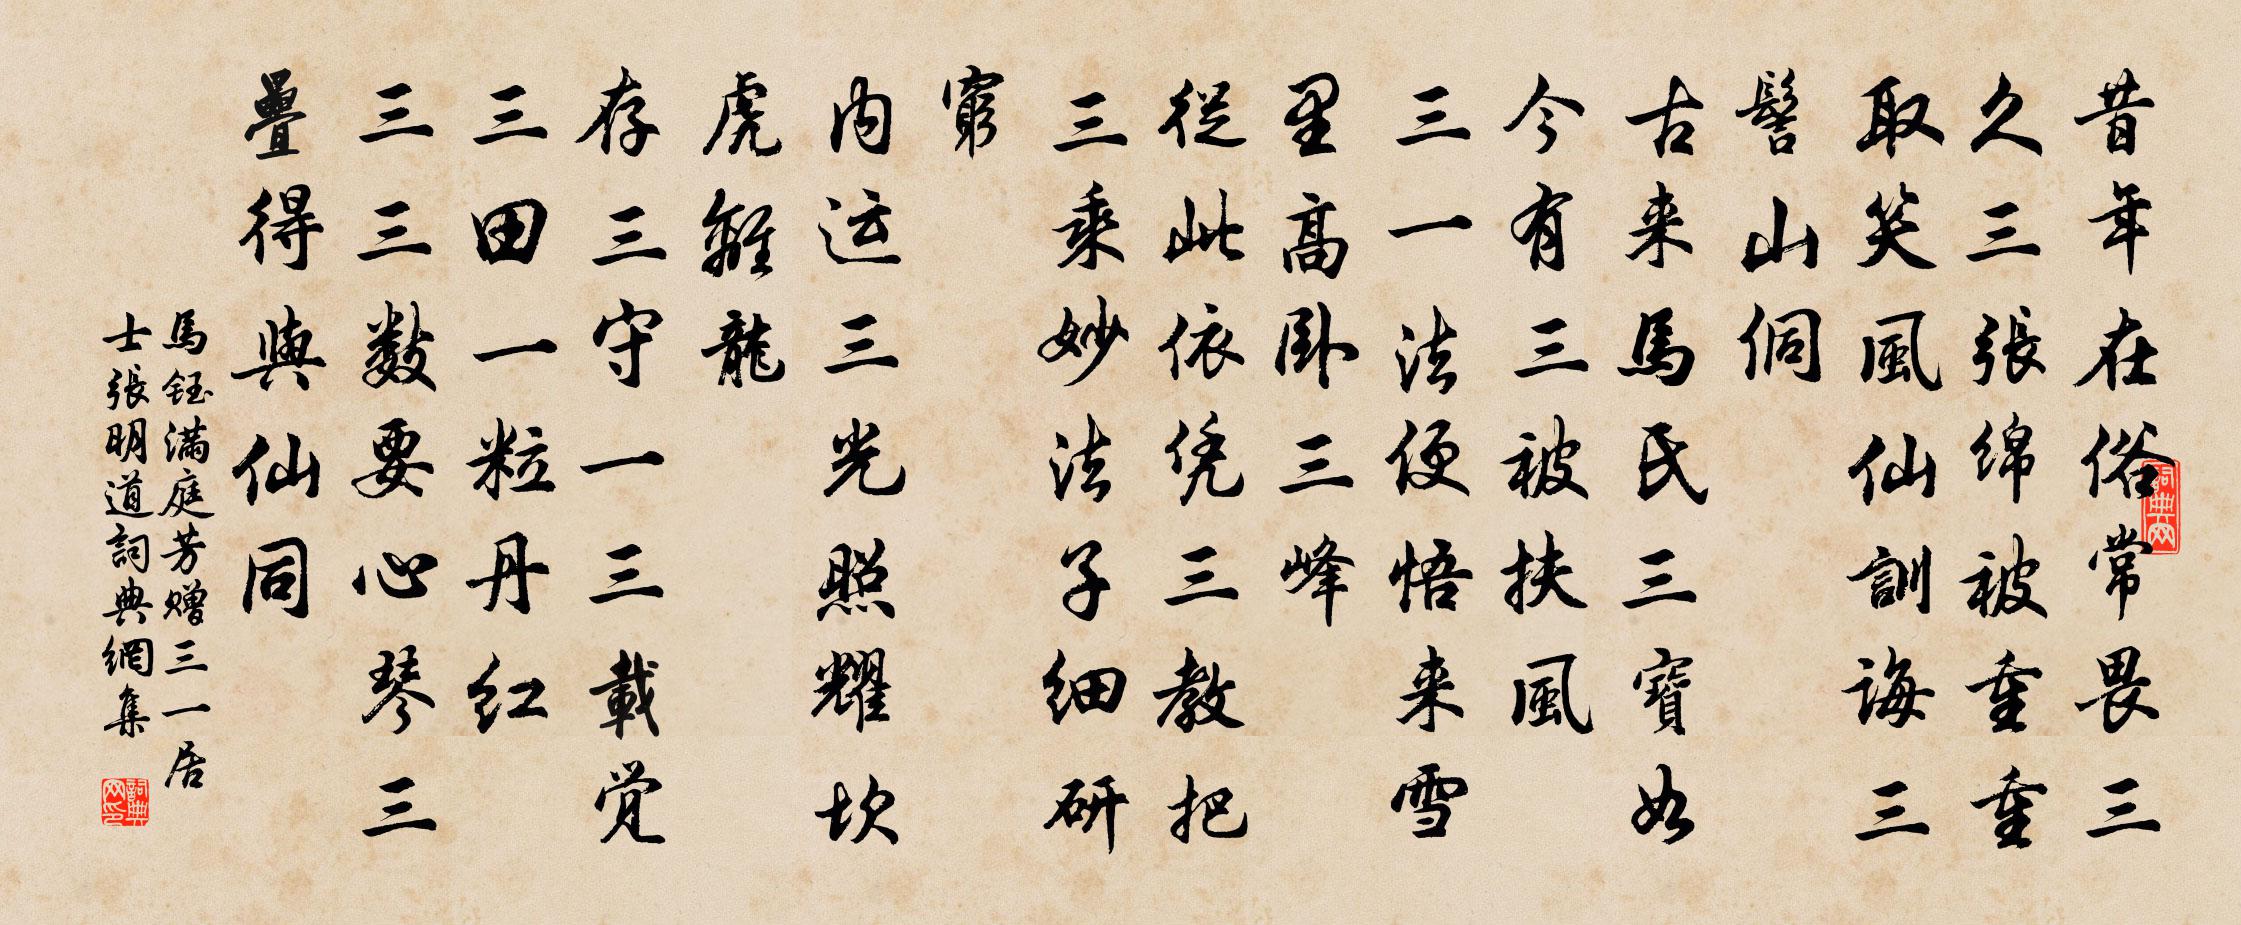 昔年在俗常畏三
久三張绵被重重
取笑風仙訓誨三
髻山侗
古来馬氏三寶如
今有三被扶風
三一法便悟来雪
里高卧三峰
從此依凭三教把
三乘妙法子细研
窮
内运三光照耀坎
虎離龍
存三守一三載觉
三田一粒丹红
三三数要心琴三
疊得與仙同
馬鈺满庭芳赠三一居
士張明道詞典網集
詞典网
詞典网印